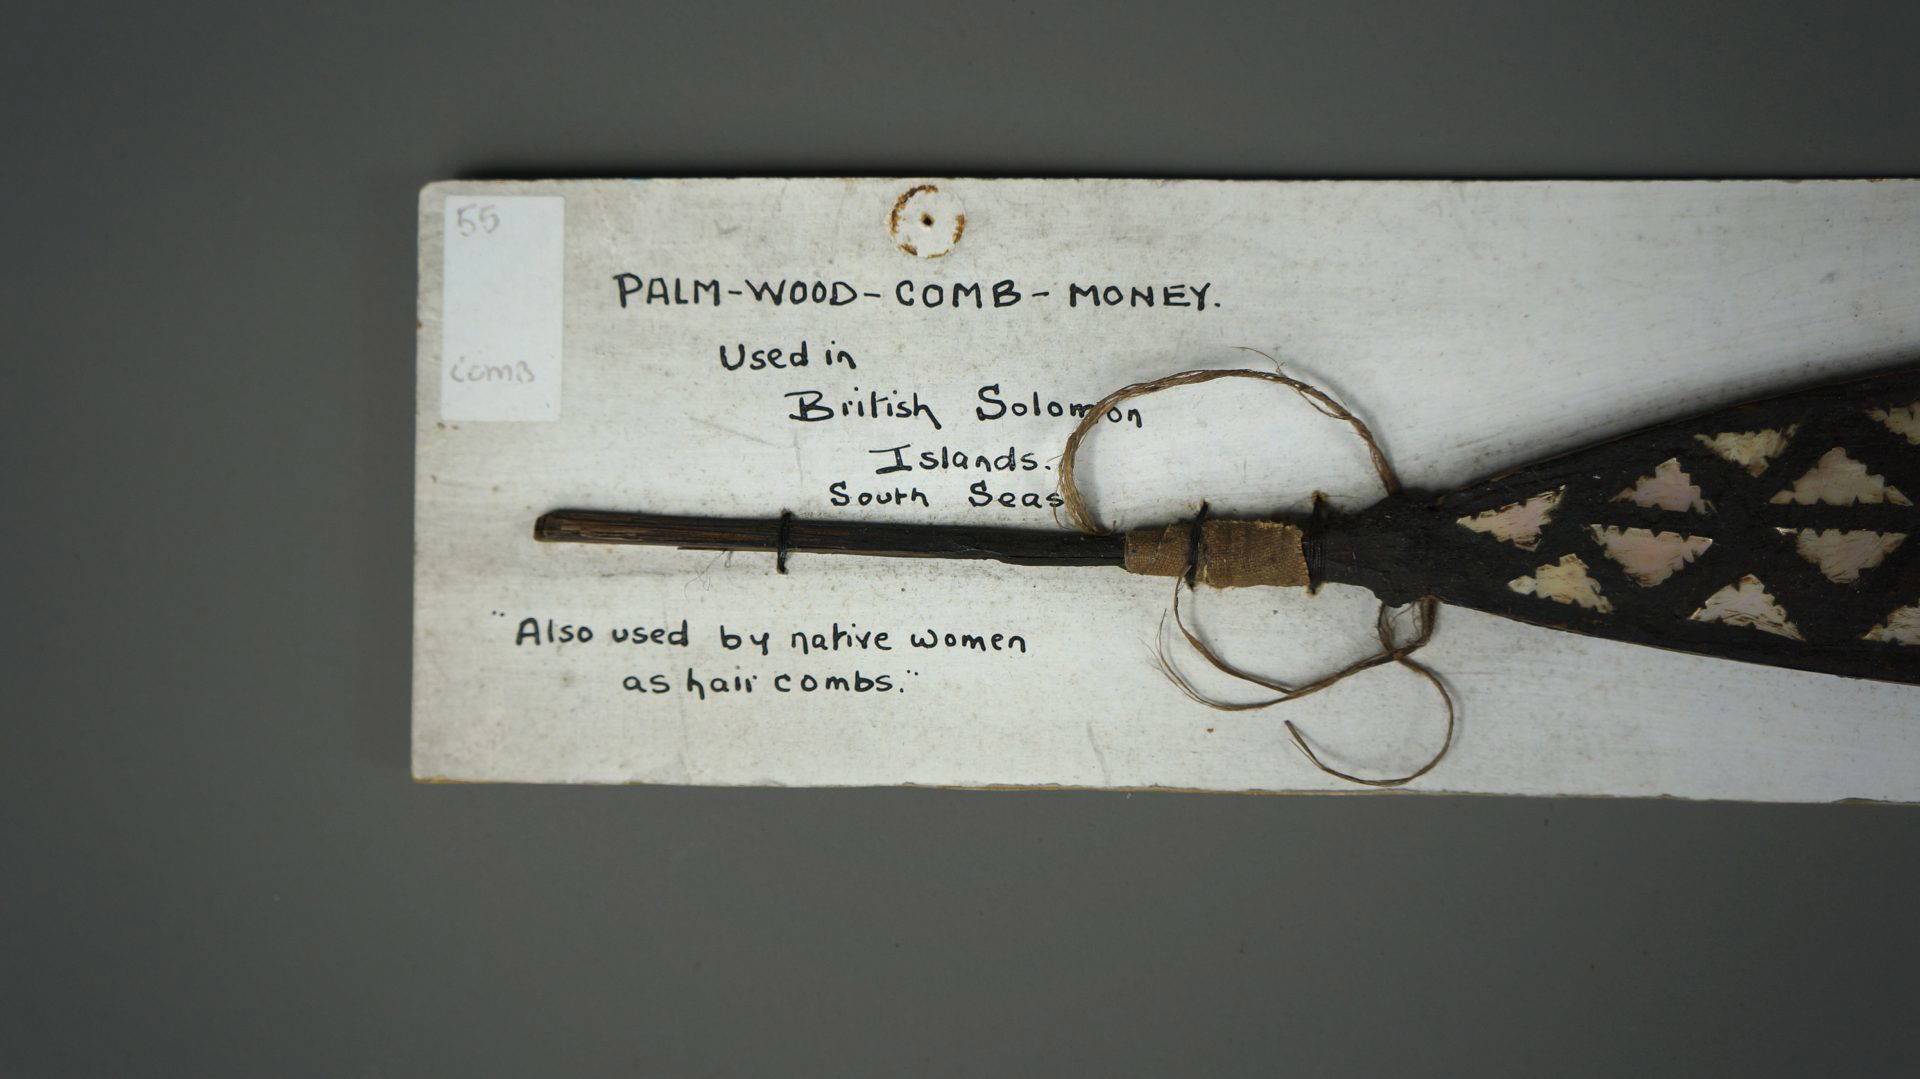 55
COMB
PALM-WOOD-COMB-MONEY.
Used in
British Solomon
Islands.
South Seas
"Also used by native women
as hair combs."